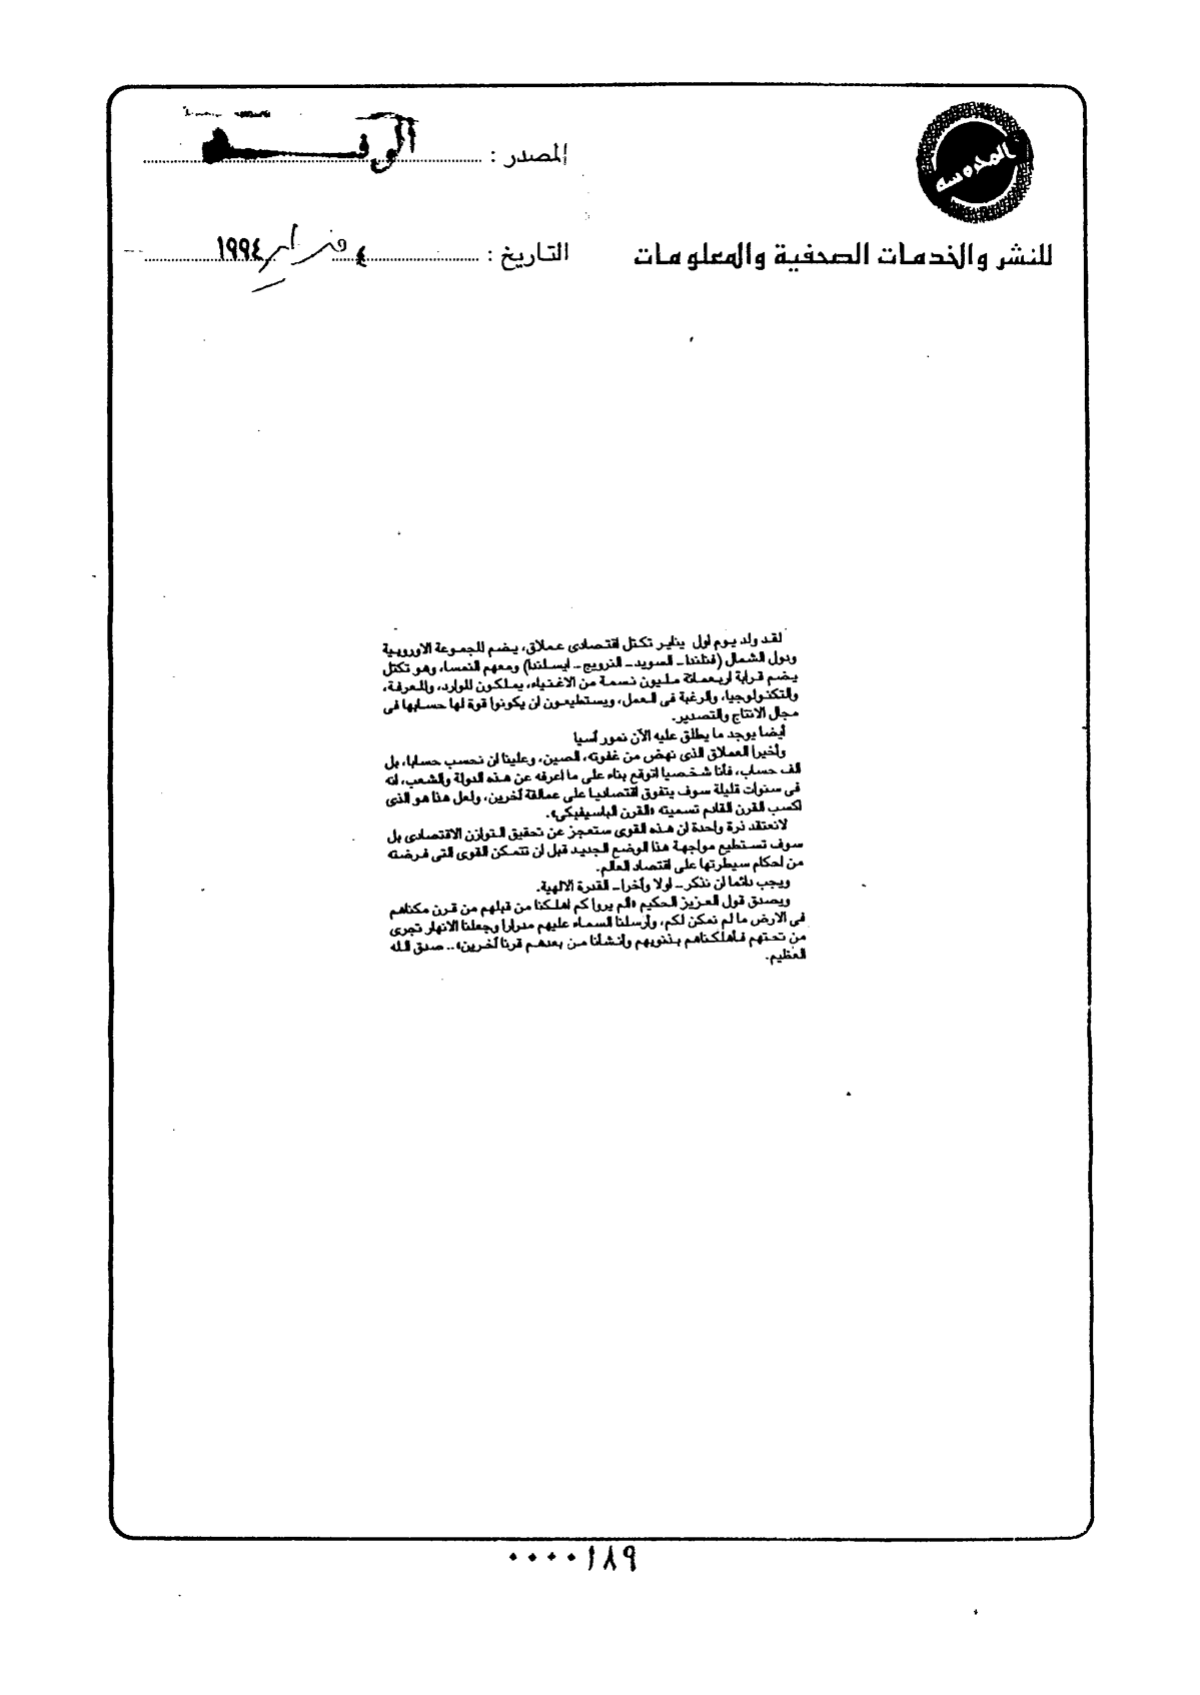 المصدر : الوفد
المحروسه
للنشر والخدمات الصحفية والمعلومات
التاريخ : ٤ فبراير ١٩٩٤
لقد ولد يوم اول يناير تكتل اقتصادى عملاق، يضم المجموعة الاوروبية
ودول الشمال (فنلندا ــ السويد ــ النرويج ــ ايسلندا) ومعهم النمسا، وهو تكتل
يضم قرابة اربعمائة مليون نسمة من الاغنياء، يملكون الموارد، والمعرفة،
والتكنولوجيا، والرغبة فى العمل، ويستطيعون ان يكونوا قوة لها حسابها فى
مجال الانتاج والتصدير.
أيضا يوجد ما يطلق عليه الآن نمور آسيا
وأخيرا العملاق الذى نهض من غفوته، الصين، وعلينا ان نحسب حسابا، بل
الف حساب، فأنا شخصيا اتوقع بناء على ما اعرفه عن هذه الدولة والشعب، انه
فى سنوات قليلة سوف يتفوق اقتصاديا على عمالقة آخرين، ولعل هذا هو الذى
اكسب القرن القادم تسميته «القرن الباسيفيكى».
لانعتقد ذرة واحدة ان هذه القوى ستعجز عن تحقيق التوازن الاقتصادى بل
سوف تستطيع مواجهة هذا الوضع الجديد قبل ان تتمكن القوى التى فرضته
من احكام سيطرتها على اقتصاد العالم.
ويجب دائما ان نذكر ــ اولا وأخرا ــ القدرة الالهية.
ويصدق قول العزيز الحكيم «الم يروا كم اهلكنا من قبلهم من قرن مكناهم
فى الارض ما لم نمكن لكم، وأرسلنا السماء عليهم مدرارا وجعلنا الانهار تجرى
من تحتهم فأهلكناهم بذنوبهم وأنشأنا من بعدهم قرنا آخرين» .. صدق الله
العظيم.
٠٠٠٠١٨٩